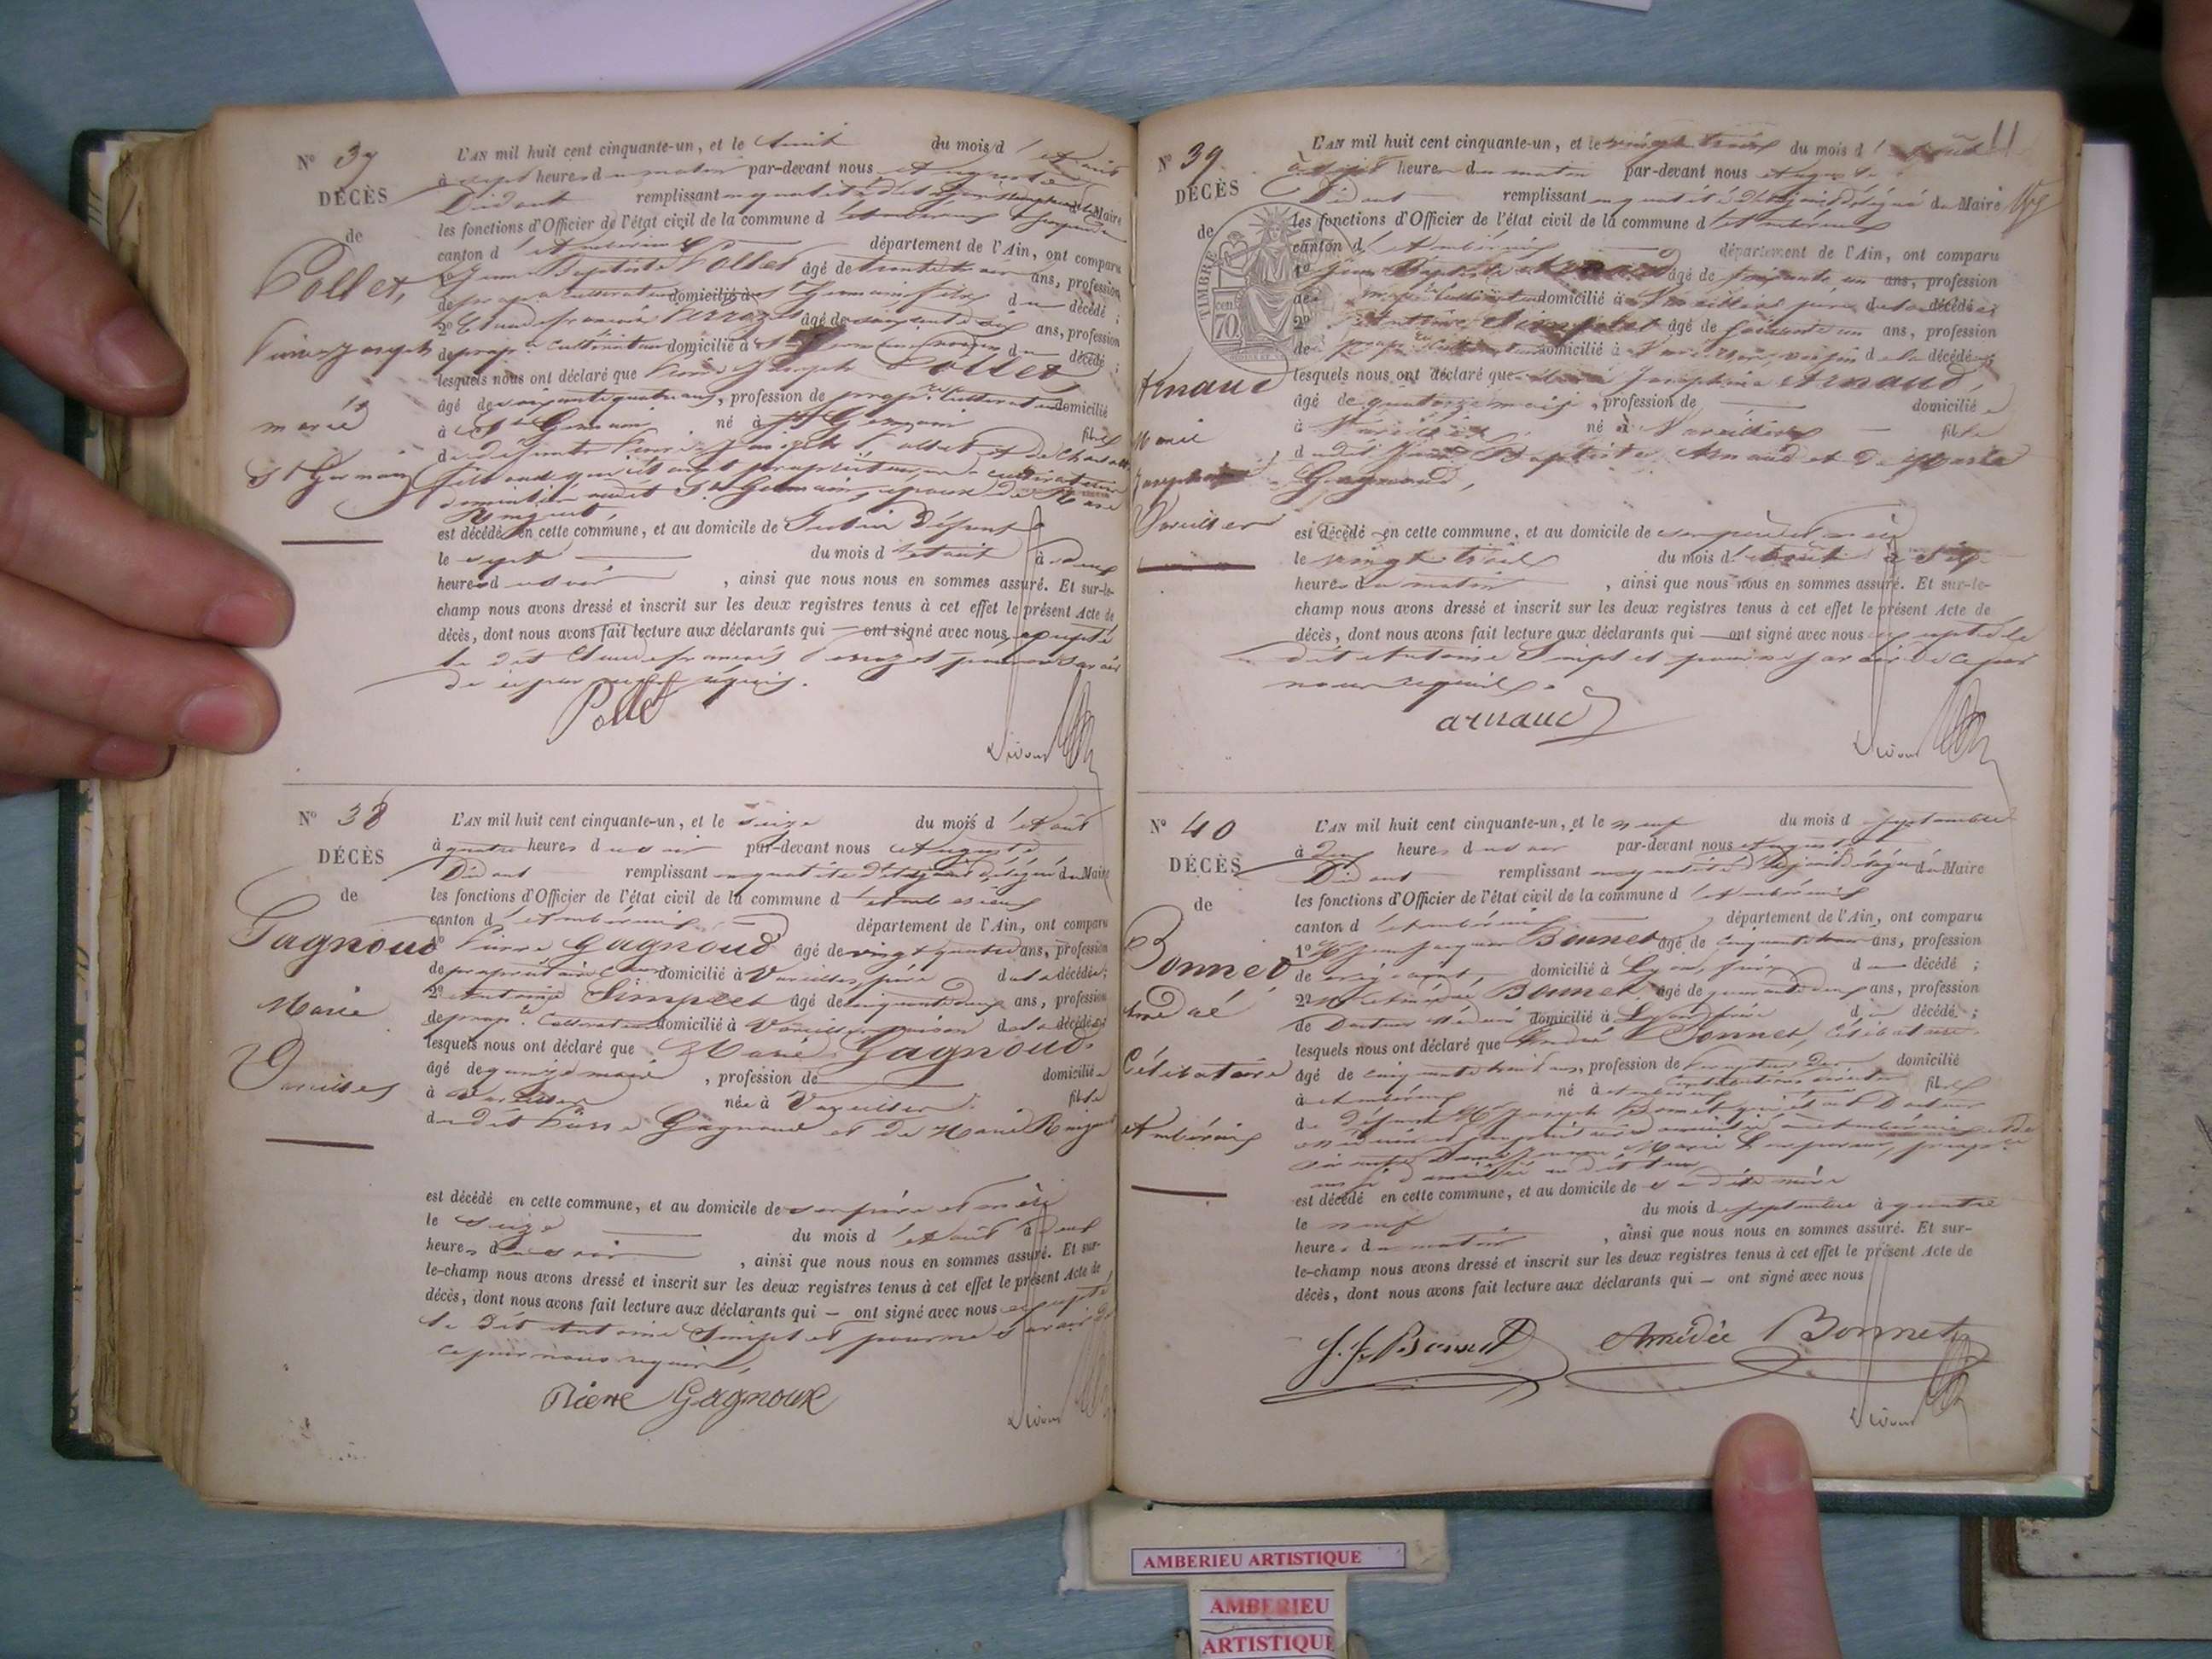 N° 37
DÉCÈS
de
Pollet,
Pierre Joseph
marié
St Germain
L'AN mil huit cent cinquante-un, et le huit du mois d'Août
à sept heures du matin par-devant nous Auguste
Divout remplissant en qualité d' Maire
les fonctions d'Officier de l'état civil de la commune d'Ambérieux
canton d'Ambérieux département de l'Ain, ont comparu
1° Jean Baptiste Pollet âgé de trente trois ans, profession
de propre cultivateur domicilié à St Germain fils du décédé ;
2° Claude françois Perrozet âgé de cinquante six ans, profession
de propre cultivateur domicilié à St Germain voisin du décédé ;
lesquels nous ont déclaré que Pierre Joseph Pollet
âgé de soixante quatre ans, profession de propre cultivateur domicilié
à St Germain né à St Germain fils
de défunts Pierre Joseph Pollet et de
époux de
est décédé en cette commune, et au domicile de défunt
le sept du mois d'Août à deux
heures du soir, ainsi que nous nous en sommes assuré. Et sur-le-
champ nous avons dressé et inscrit sur les deux registres tenus à cet effet le présent Acte de
décès, dont nous avons fait lecture aux déclarants qui — ont signé avec nous, excepté
le dit Claude françois Perrozet pour ne savoir
de ce par nous requis.
Pollet
Divout
N° 38
DÉCÈS
de
Gagnoud
Marie
Vareilles
L'AN mil huit cent cinquante-un, et le seize du mois d'Août
à quatre heures du soir par-devant nous Auguste
Divout remplissant en qualité d'adjoint délégué du Maire
les fonctions d'Officier de l'état civil de la commune d'Ambérieux
canton d'Ambérieux département de l'Ain, ont comparu
1° Pierre Gagnoud âgé de vingt quatre ans, profession
de propriétaire domicilié à Vareilles, père de la décédée ;
2° Antoine Simplet âgé de cinquante deux ans, profession
de propre cultivateur domicilié à Vareilles voisin de la décédée ;
lesquels nous ont déclaré que Marie Gagnoud
âgé de quinze mois, profession de domiciliée
à Vareilles née à Vareilles fille
du dit Pierre Gagnoud et de Marie
est décédé en cette commune, et au domicile de son père et mère
le seize du mois d'Août à deux
heures du soir, ainsi que nous nous en sommes assuré. Et sur-
le-champ nous avons dressé et inscrit sur les deux registres tenus à cet effet le présent Acte de
décès, dont nous avons fait lecture aux déclarants qui — ont signé avec nous excepté
le dit Antoine Simplet pour ne savoir de
ce par nous requis,
Pierre Gagnoux
Divout
11
N° 39
DÉCÈS
de
TIMBRE
70
Arnaud
Marie
Josephine
Vareilles
L'AN mil huit cent cinquante-un, et le vingt trois du mois d'Août
à sept heures du matin par-devant nous Auguste
Divout remplissant en qualité d'adjoint délégué du Maire
les fonctions d'Officier de l'état civil de la commune d'Ambérieux
canton d'Ambérieux département de l'Ain, ont comparu
1° Jean Baptiste Arnaud âgé de cinquante un ans, profession
de propre cultivateur domicilié à Vareilles père de la décédée ;
2° Antoine Simplet âgé de soixante un ans, profession
de propre cultivateur domicilié à Vareilles, voisin de la décédée ;
lesquels nous ont déclaré que Marie Josephine Arnaud,
âgé de quatorze mois, profession de domiciliée
à Vareilles né à Vareilles fille
du dit Jean Baptiste Arnaud et de Marie
Gagnoud,
est décédé en cette commune, et au domicile de son père et mère
le vingt trois du mois d'Août à six
heures du matin, ainsi que nous nous en sommes assuré. Et sur-le-
champ nous avons dressé et inscrit sur les deux registres tenus à cet effet le présent Acte de
décès, dont nous avons fait lecture aux déclarants qui — ont signé avec nous excepté le
dit Antoine Simplet pour ne savoir de ce par
nous requis.
arnaud
Divout
N° 40
DÉCÈS
de
Bonnet
André
Célibataire
Ambérieux
L'AN mil huit cent cinquante-un, et le neuf du mois de septembre
à deux heures du soir par-devant nous Auguste
Divout remplissant en qualité d'adjoint délégué du Maire
les fonctions d'Officier de l'état civil de la commune d'Ambérieux
canton d'Ambérieux département de l'Ain, ont comparu
1° Mr Jean Jacques Bonnet âgé de cinquante trois ans, profession
de négociant, domicilié à Lyon, frère du décédé ;
2° Mr Amédée Bonnet, âgé de quarante deux ans, profession
de Docteur Médecin domicilié à Lyon frère du décédé ;
lesquels nous ont déclaré que André Bonnet, célibataire
âgé de cinquante huit ans, profession de Percepteur des domicilié
contributions directes
à Ambérieux né à Ambérieux fils
de défunt Mr Joseph Bonnet qui était Docteur
Médecin
Marie
est décédé en cette commune, et au domicile de sa dite mère
le neuf du mois de septembre à quatre
heures du matin, ainsi que nous nous en sommes assuré. Et sur-
le-champ nous avons dressé et inscrit sur les deux registres tenus à cet effet le présent Acte de
décès, dont nous avons fait lecture aux déclarants qui — ont signé avec nous
J. J. Bonnet Amédée Bonnet
Divout
AMBERIEU ARTISTIQUE
AMBERIEU
ARTISTIQUE